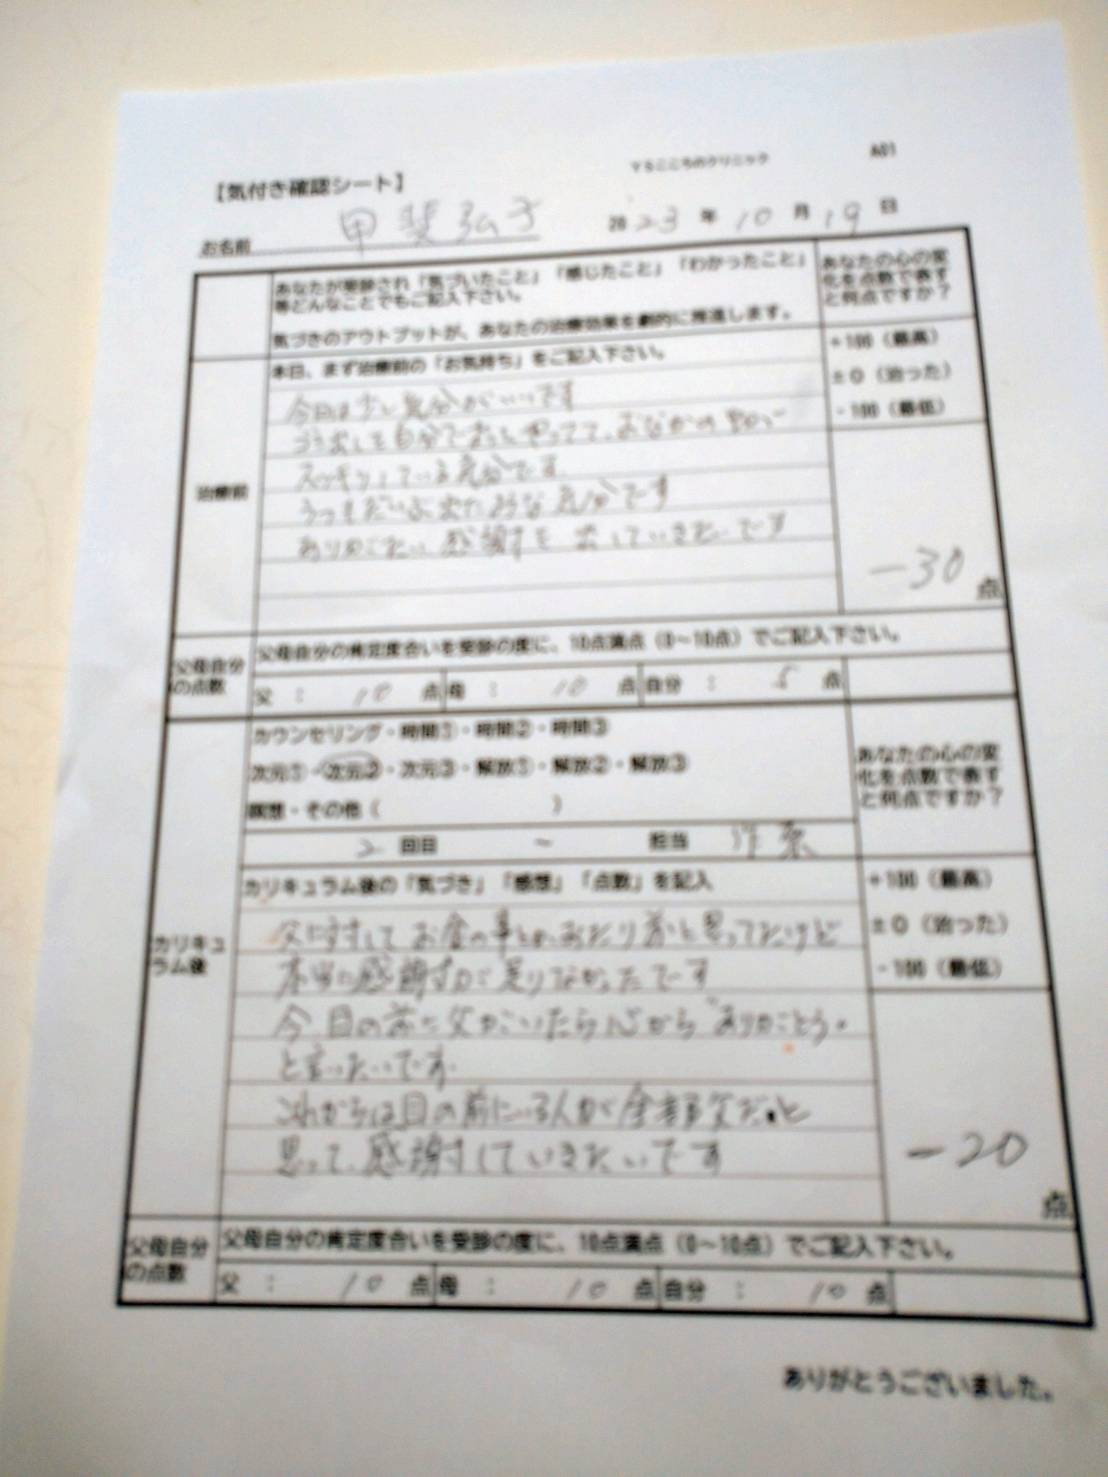 YSこころのクリニック A01
【気付き確認シート】
お名前 甲斐弘子 2023年10月19日
あなたが受診され「気づいたこと」「感じたこと」「わかったこと」
等どんなことでもご記入下さい。
気づきのアウトプットが、あなたの治療効果を劇的に推進します。
あなたの心の変
化を点数で表す
と何点ですか？
+100（最高）
±0（治った）
-100（最低）
治療前
本日、まず治療前の「お気持ち」をご記入下さい。
今日は少し気分がいいです
自分で おなかの
スッキリしている気分です
うつもだいぶ出たような気分です
ありがたい感謝を出していきたいです
-30点
父母自分
の点数
父母自分の肯定度合いを受診の度に、10点満点（0〜10点）でご記入下さい。
父： 10点 母： 10点 自分： 5点
カリキュ
ラム後
カウンセリング・時間①・時間②・時間③
次元①・次元②・次元③・解放①・解放②・解放③
瞑想・その他（ ）
2回目 ー 担当
あなたの心の変
化を点数で表す
と何点ですか？
カリキュラム後の「気づき」「感想」「点数」を記入
+100（最高）
±0（治った）
-100（最低）
父に対してお金の事とかあたり前と思ってたけど
本当に感謝が足りなかったです
今目の前に父がいたら心から"ありがとう。
と言いたいです。
これからは目の前にいる人が全部父だと
思って、感謝していきたいです
-20点
父母自分
の点数
父母自分の肯定度合いを受診の度に、10点満点（0〜10点）でご記入下さい。
父： 10点 母： 10点 自分： 10点
ありがとうございました。